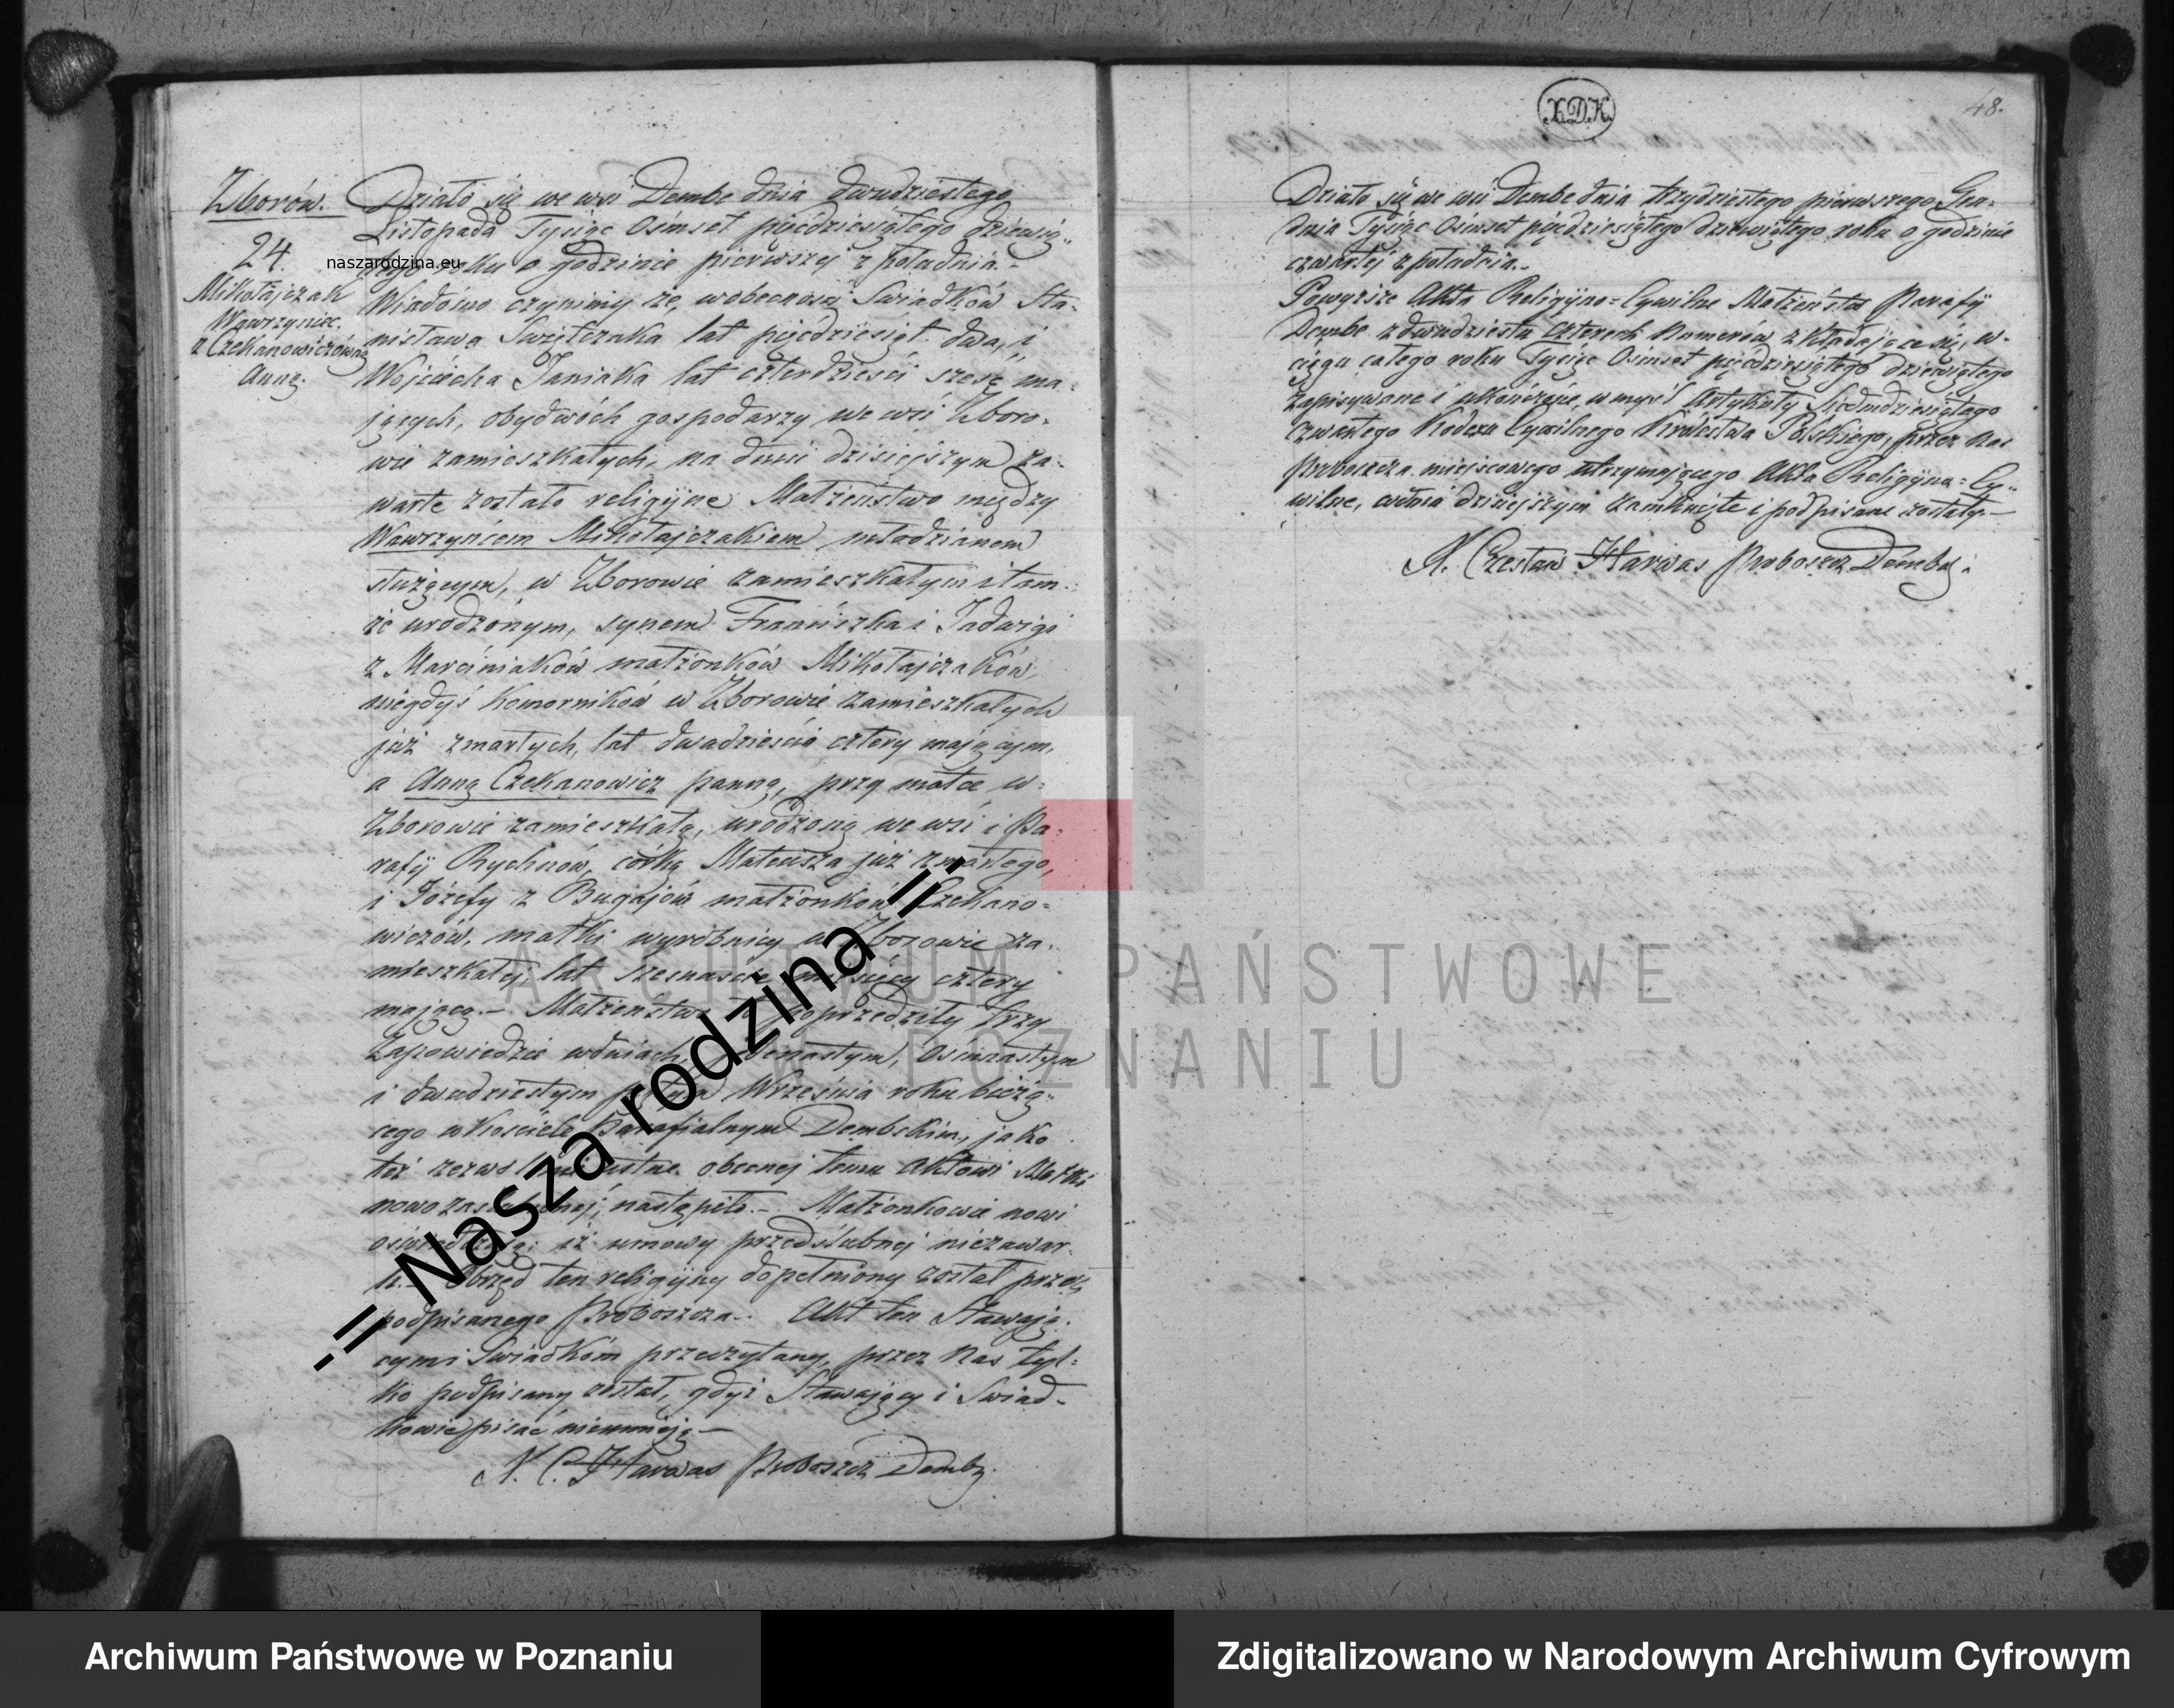 Zborów.
24.
Mikołajczak
Wawrzyniec.
z Czekanowiczówną
Anną.
Działo się we wsi Dembe dnia dwudziestego
Listopada Tysiąc Ośmset pięćdziesiątego dziewią„
roku o godzinie pierwszej z południa.–
Wiadomo czynimy że, wobecności Świadków Sta-
nisława Świętczaka lat pięćdziesiąt dwa, i
Wojciecha Janiaka lat czterdzieści sześć ma-
jących, obydwóch gospodarzy we wsi Zboro-
wie zamieszkałych, na dniu dzisiejszym za-
warte zostało religijne Małżeństwo między
Wawrzyńcem Mikołajczakiem młodzianem
służącym, w Zborowie zamieszkałym i tam-
że urodzonym, synem Franciszka i Jadwigi
z Marciniaków małżonków Mikołajczaków,
niegdyś Komorników w Zborowie zamieszkałych
już zmarłych, lat dwadzieścia cztery mającym,
a Anną Czekanowicz panną, przy matce w-
Zborowie zamieszkałą, urodzoną we wsi i Pa-
rafij Rychnów, córką Mateusza już zmarłego,
i Józefy z Bugajów małżonków Czekano-
wiczów, matki wyrobnicy w Zborowie za-
mieszkałej, lat szesnaście miesięcy cztery
mającą.– Małżeństwo to poprzedziły trzy
Zapowiedzie wdniach, Osimnastym
i dwudziestym piątym Września roku bieżą„
cego w Kościele Parafialnym Dembskim, jako
też zezwolenie ustne obecnej temu Aktowi Matki
nowozaślubionej, nastąpiło.– Małżonkowie nowi
oświadczają; iż umowy przedślubnej niezawar-
li.– Obrzęd ten religijny dopełniony został przez
podpisanego Proboszcza.– Akt ten Stawają-
cymi Świadkóm przeczytany, przez Nas tyl-
ko podpisany został, gdyż Stawający i Świad-
kowie pisać nieumieją—
X. C. Harwas Proboszcz Demby.
X.D.K.
48.
Działo się we wsi Dembe dnia trzydziestego pierwszego Gru-
dnia Tysiąc Ośmset pięćdziesiątego dziewiątego roku o godzinie
czwartej z południa.–
Powyższe Akta Religijno=Cywilne Małżeństw Parafij
Dembe z dwudziestu czterech Numerów składające się, w-
ciągu całego roku Tysiąc Ośmset pięćdziesiątego dziewiątego
zapisywane i ukończone, w myśl Artykułu Siedmdziesiątego
Czwartego Kodexu Cywilnego Królestwa Polskiego, przez Nas
Proboszcza miejscowego utrzymującego Akta Religijno=Cy„
wilne, wdniu dzisiejszym zamknięte i podpisane zostały.—
X. Czesław Harwas Proboszcz Demby.
naszarodzina.eu
-= Nasza rodzina =-
ARCHIWUM PAŃSTWOWE
W POZNANIU
Archiwum Państwowe w Poznaniu
Zdigitalizowano w Narodowym Archiwum Cyfrowym